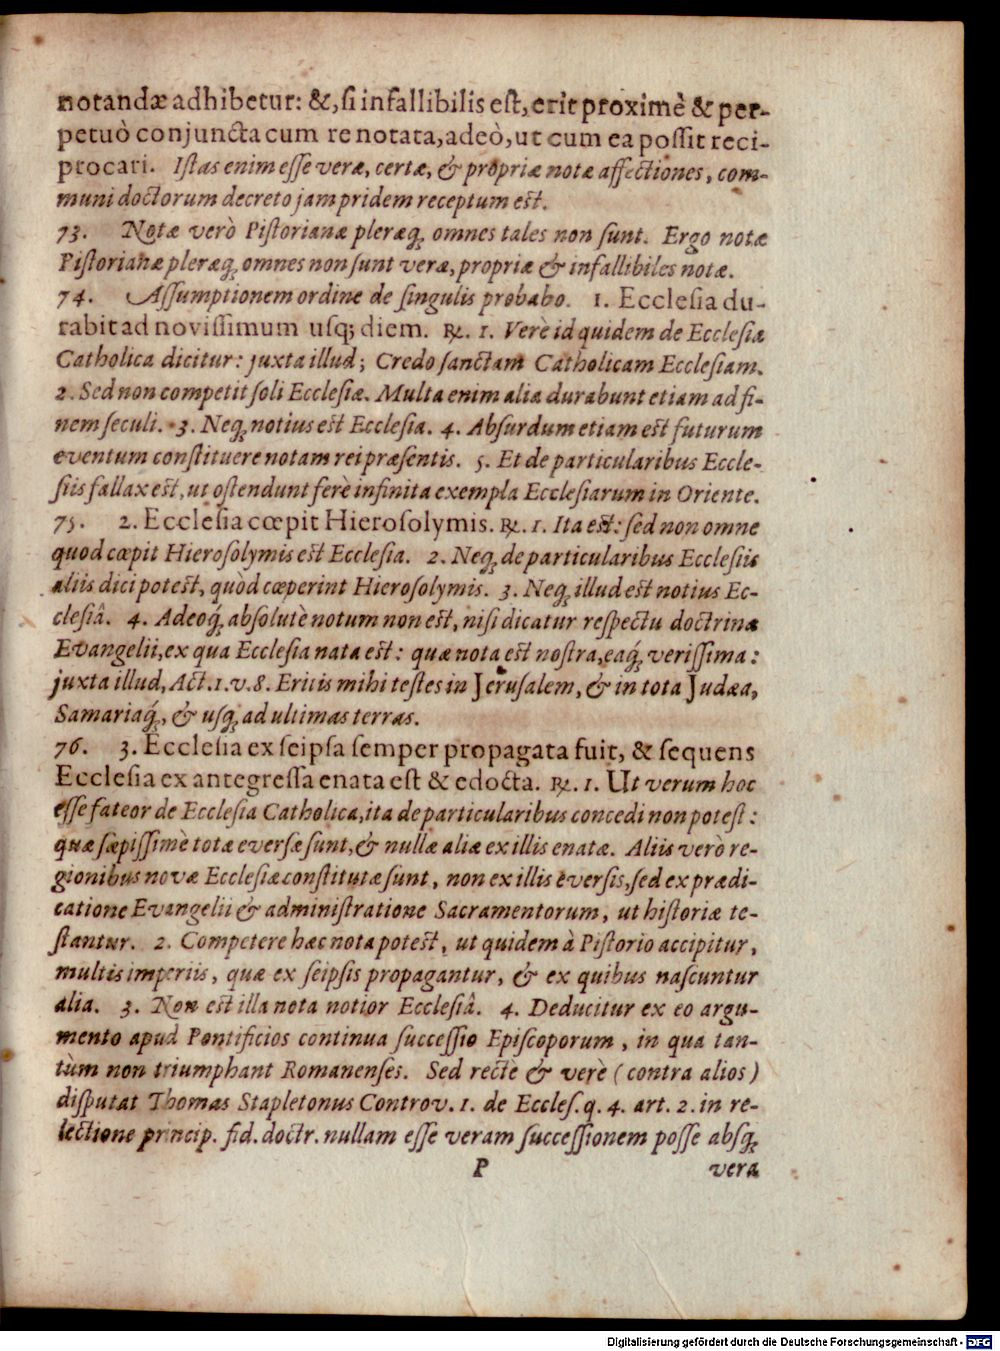 notandæ adhibetur: &, si infallibilis est, erit proximè & per-
petuò conjuncta cum re notata, adeò, ut cum ea possit reci-
procari. Istas enim esse veræ, certæ, & propriæ notæ affectiones, com-
muni doctorum decreto jampridem receptum est.
73. Notæ verò Pistorianæ pleræq; omnes tales non sunt. Ergo notæ
Pistorianæ pleræq; omnes non sunt veræ, propriæ & infallibiles notæ.
74. Assumptionem ordine de singulis probabo. 1. Ecclesia du-
rabit ad novissimum usq; diem. ℞. 1. Verè id quidem de Ecclesia
Catholica dicitur: juxta illud; Credo sanctam Catholicam Ecclesiam.
2. Sed non competit soli Ecclesiæ. Multa enim alia durabunt etiam ad fi-
nem seculi. 3. Neq; notius est Ecclesia. 4. Absurdum etiam est futurum
eventum constituere notam rei præsentis. 5. Et de particularibus Eccle-
siis fallax est, ut ostendunt ferè infinita exempla Ecclesiarum in Oriente.
75. 2. Ecclesia cœpit Hierosolymis. ℞. 1. Ita est: sed non omne
quod cœpit Hierosolymis est Ecclesia. 2. Neq; de particularibus Ecclesiis
aliis dici potest, quòd cœperint Hierosolymis. 3. Neq; illud est notius Ec-
clesiâ. 4. Adeoq́; absolutè notum non est, nisi dicatur respectu doctrinæ
Evangelii, ex qua Ecclesia nata est: quæ nota est nostra, eaq́; verissima:
juxta illud, Act. 1. v. 8. Eritis mihi testes in Jerusalem, & in tota Judæa,
Samariaq́;, & usq; ad ultimas terras.
76. 3. Ecclesia ex seipsa semper propagata fuit, & sequens
Ecclesia ex antegressa enata est & edocta. ℞. 1. Ut verum hoc
esse fateor de Ecclesia Catholica, ita de particularibus concedi non potest:
quæ sæpissimè totæ eversæ sunt, & nullæ aliæ ex illis enatæ. Aliis verò re-
gionibus novæ Ecclesiæ constitutæ sunt, non ex illis eversis, sed ex prædi-
catione Evangelii & administratione Sacramentorum, ut historiæ te-
stantur. 2. Competere hæc nota potest, ut quidem à Pistorio accipitur,
multis imperiis, quæ ex seipsis propagantur, & ex quibus nascuntur
alia. 3. Non est illa nota notior Ecclesiâ. 4. Deducitur ex eo argu-
mento apud Pontificios continua successio Episcoporum, in qua tan-
tùm non triumphant Romanenses. Sed rectè & verè (contra alios)
disputat Thomas Stapletonus Controv. 1. de Eccles. q. 4. art. 2. in re-
lectione princip. fid. doctr. nullam esse veram successionem posse absq;
P vera
Digitalisierung gefördert durch die Deutsche Forschungsgemeinschaft - DFG